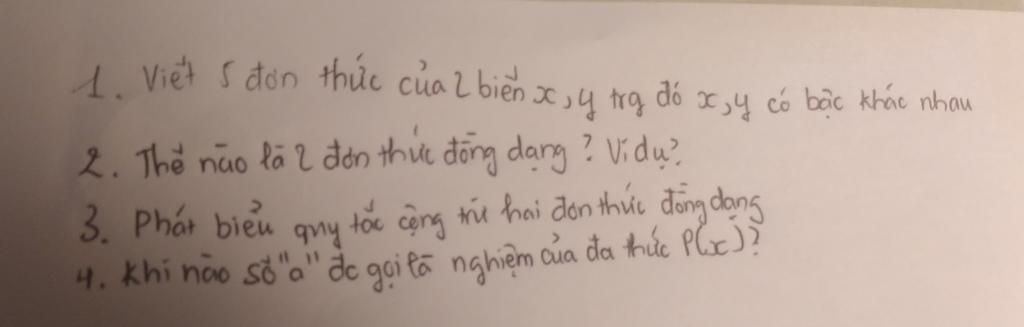 1. Viết 5 đơn thức của 2 biến x, y trg đó x, y có bậc khác nhau
2. Thế nào là 2 đơn thức đồng dạng? Ví dụ?
3. Phát biểu quy tắc cộng trừ hai đơn thức đồng dạng
4. Khi nào số "a" đc gọi là nghiệm của đa thức P(x)?